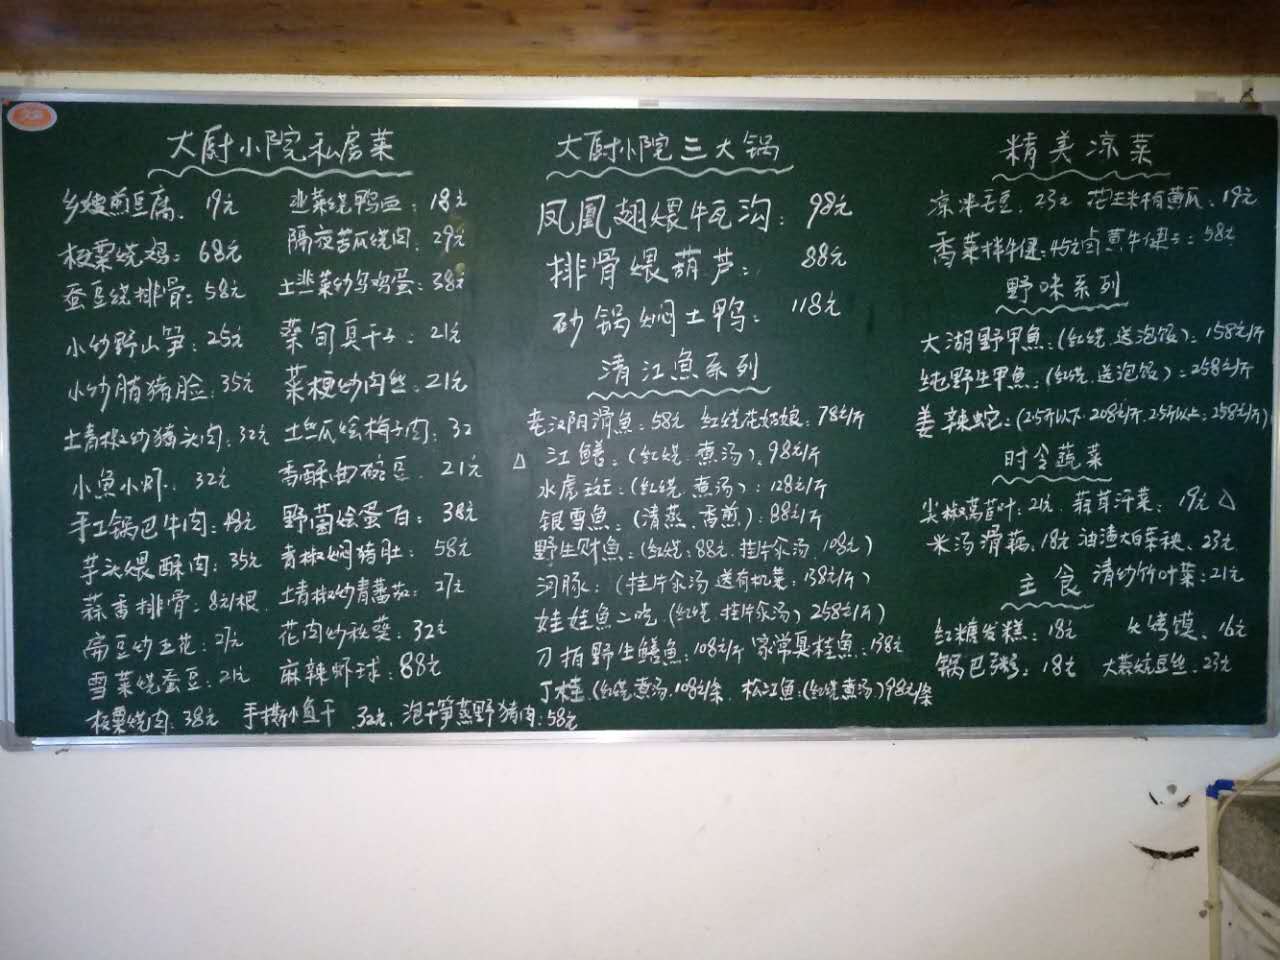 大厨小院私房菜
乡嫂煎豆腐、19元
板栗烧鸡：68元
蚕豆烧排骨：58元
小炒野山笋：25元
小炒腊猪脸：35元
土青椒炒猪头肉：32元
小魚小虾、32元
手工锅巴牛肉：48元
芋头煨酥肉：35元
蒜香排骨：8元/根
扁豆炒五花：27元
雪菜烧蚕豆：21元
板栗烧肉：38元
韭菜烧鸭血：18元
隔夜苦瓜烧肉、29元
土韭菜炒乌鸡蛋：38元
菜梗炒肉丝、21元
土丝瓜烩梅子肉：32
香酥曲豌豆、21元
野菌烩蛋白：38元
青椒焖猪肚：58元
土青椒炒青蕃茄：27元
花肉炒秋葵：32元
麻辣虾球：88元
手撕小鱼干、32元、泡干笋蒸野猪肉：58元
大厨小院三大锅
凤凰翅煨牛瓦沟：98元
排骨煨葫芦：88元
砂锅焖土鸭：118元
清江魚系列
老汉阴滑魚：58元 红烧花姑娘：78元/斤
△ 江鳝：(红烧、煮汤)：98元/斤
水虎斑：(红烧、煮汤)：128元/斤
银雪魚：(清蒸、香煎)：88元/斤
野生财魚：(红烧：88元、挂片汆汤、108元)
河豚：(挂片汆汤 送有机菜：138元/斤)
娃娃魚二吃(红烧、挂片汆汤)258元/斤)
刀拍野生鳝魚：108元/斤 家常臭桂魚：138元
丁桂(红烧、煮汤、108元/条、松江魚：(红烧煮汤)98元/条
精美凉菜
凉拌毛豆、23元 花生米拍黄瓜、19元
香菜拌牛健：45元 卤黄牛健子：58元
野味系列
大湖野甲魚：(红烧、送泡饭)：158元/斤
纯野生甲魚：(红烧、送泡饭)：258元/斤
姜辣蛇：(2.5斤以下、208元/斤、2.5斤以上：258元/斤)
时令蔬菜
尖椒莴苣叶：21元、蒜茸汗菜、19元△
米汤滑藕、18元 油渣大白菜秧、23元
清炒竹叶菜：21元
主食
红糖发糕：18元 火烤馍、16元
锅巴粥：18元 大蒸烧豆丝、23元